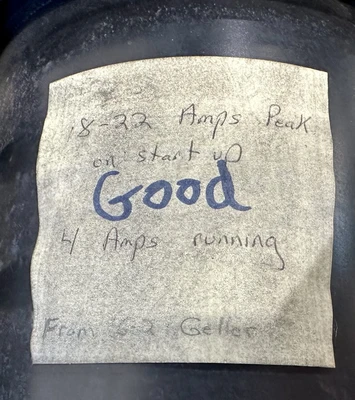 18-22 Amps Peak
on start up
Good
4 Amps running
From Geller